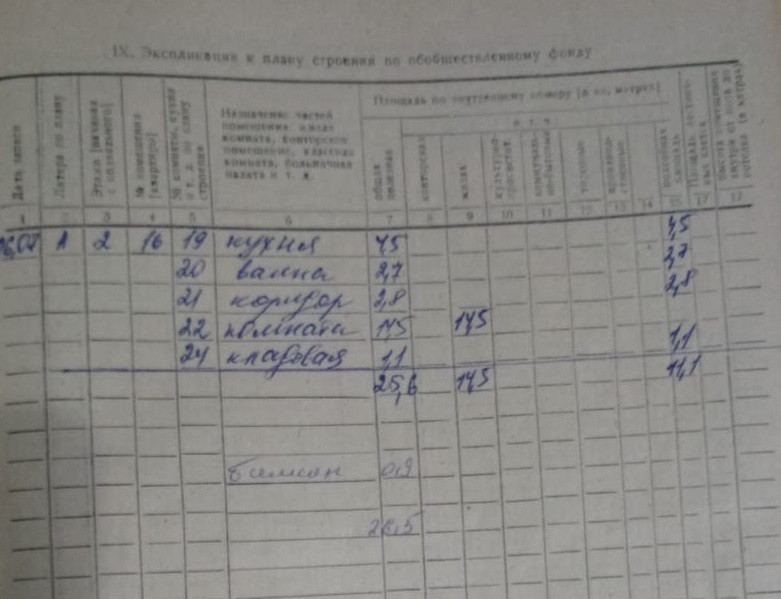 IX. Экспликация к плану строения по обобществленному фонду
Дата записи
Литера по плану
Этажи [начиная с подвального]
№ помещения [квартиры]
№ комнаты, кухни и т. д. по плану строения
Назначение частей помещения: жилая комната, конторское помещение, классная комната, больничная палата и т. д.
Площадь по внутреннему обмеру [в кв. метрах]
в т. ч.
общая полезная
конторская
жилая
торговая
подсобная площадь
1 2 3 4 5 6 7 8 9 10 11 12 13 14 15 17 18
А 2 16 19 кухня 7,5 7,5
20 ванна 2,7 2,7
21 коридор 2,8 2,8
22 комната 14,5 14,5
24 кладовая 1,1 1,1
25,6 14,5 11,1
балкон 0,9
26,5